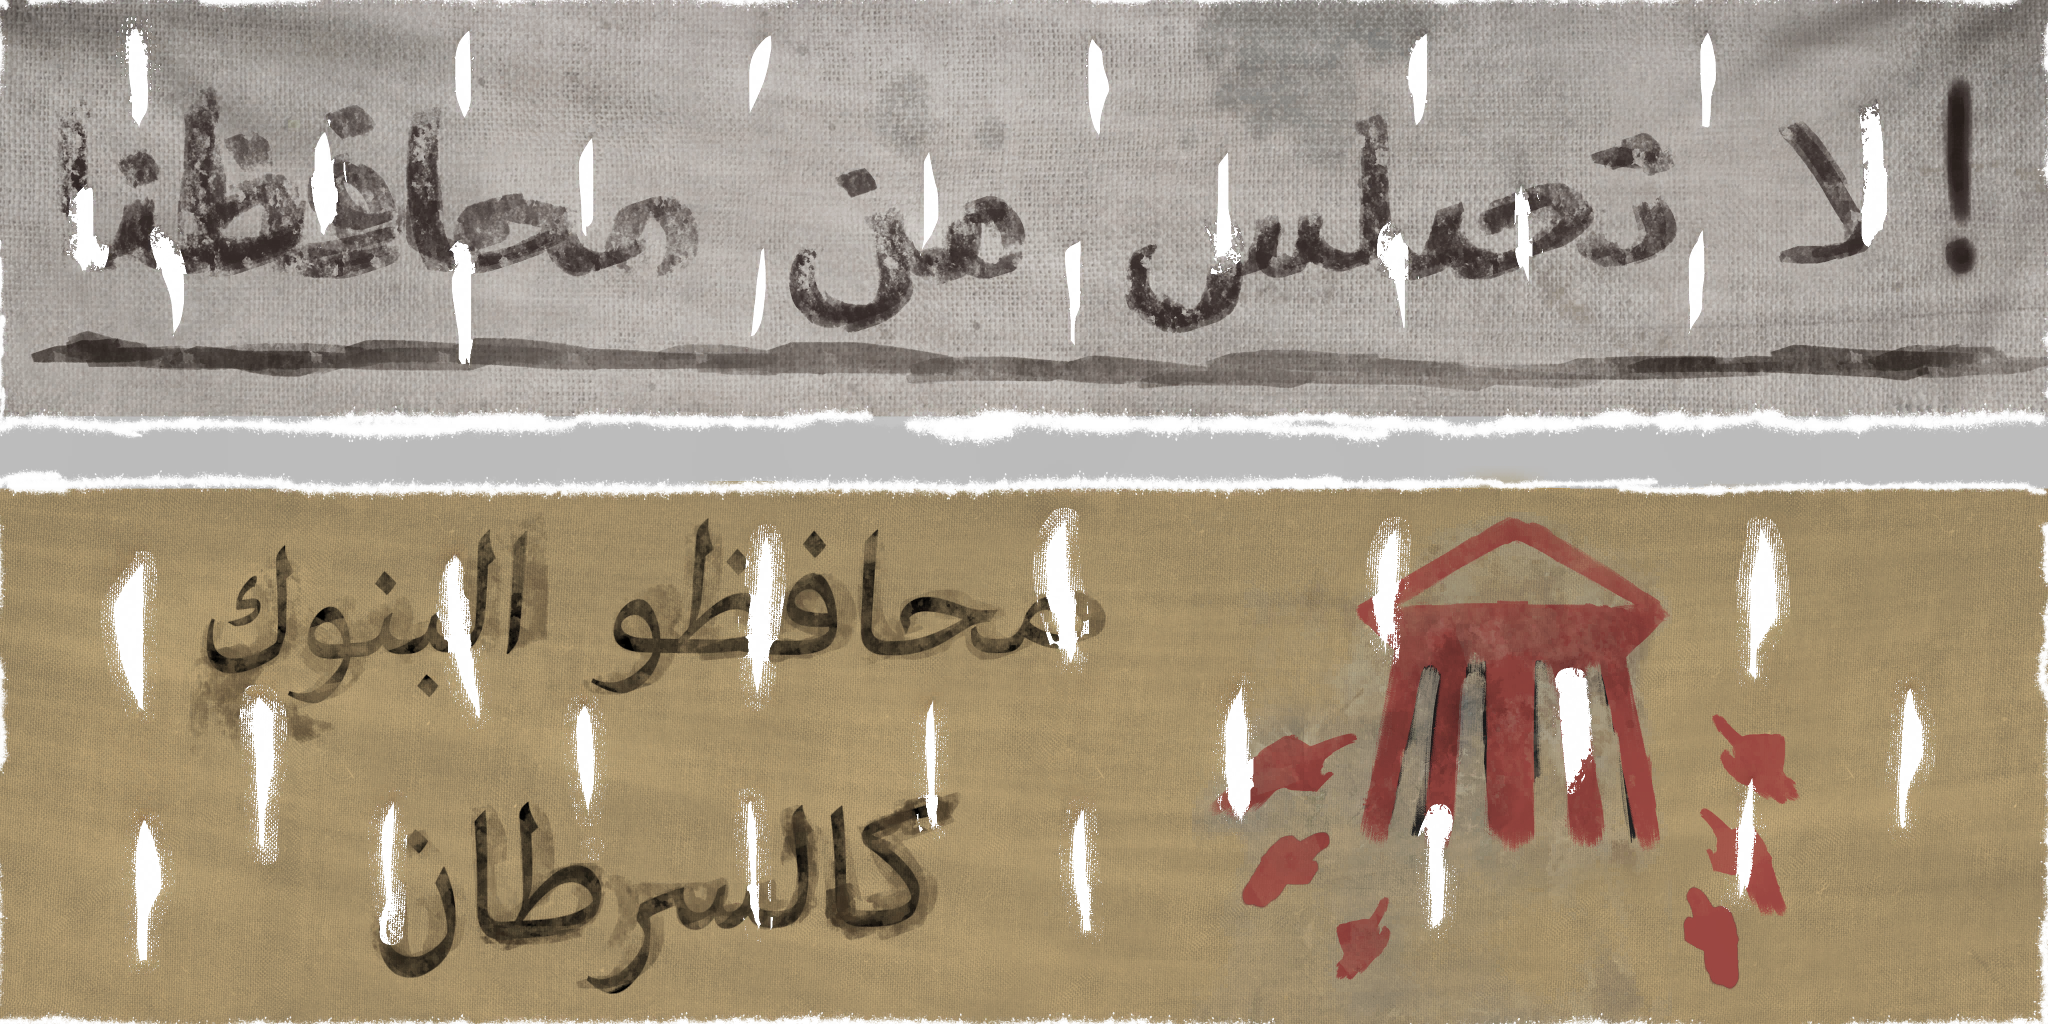 ! لا تصلس من محافظنا
محافظو البنوك
كالسرطان